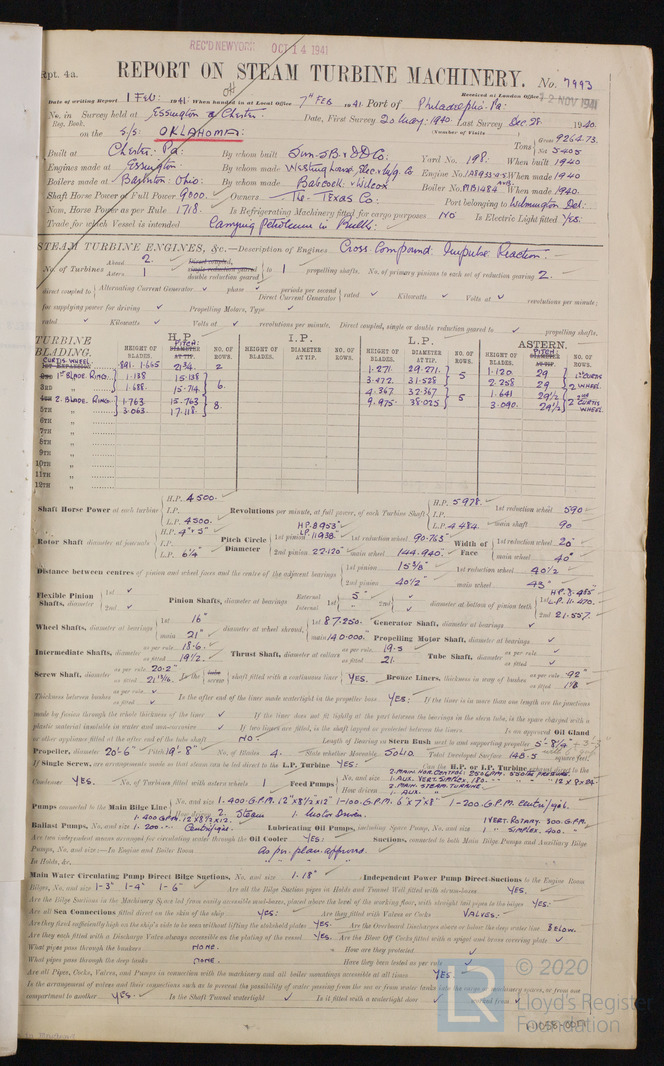 REC'D NEW YORK OCT 14 1941
Rpt. 4a.
REPORT ON STEAM TURBINE MACHINERY. No. 7993
Received at London Office 12 NOV 1941
Date of writing Report 1 Feb: 1941. When handed in at Local Office 7TH FEB 1941. Port of Philadelphia. Pa:
No. in Survey held at Essington & Chester. Date, First Survey 20 May. 1940. Last Survey Dec 28. 1940.
Reg. Book. (Number of Visits
on the S/S: OKLAHOMA: Tons Gross 9264.73.
Net 5405
Built at Chester. Pa: By whom built Sun. S.B. & D.D Co: Yard No. 198. When built 1940
Engines made at Essington By whom made Westinghouse. Elec. & Mfg. Co Engine No. When made 1940
Boilers made at Barberton: Ohio: By whom made Babcock & Wilcox Boiler No. When made 1940.
Shaft Horse Power at Full Power 9000. Owners The Texas Co: Port belonging to Wilmington Del:
Nom. Horse Power as per Rule 1718. Is Refrigerating Machinery fitted for cargo purposes NO Is Electric Light fitted YES.
Trade for which Vessel is intended Carrying Petroleum in Bulk.
STEAM TURBINE ENGINES, &c.—Description of Engines Cross Compound. Impulse. Reaction.
No. of Turbines Ahead 2. Astern 1 Direct coupled, single reduction geared double reduction geared to 1 propelling shafts. No. of primary pinions to each set of reduction gearing 2.
direct coupled to Alternating Current Generator ✓ phase ✓ periods per second Direct Current Generator rated ✓ Kilowatts ✓ Volts at ✓ revolutions per minute;
for supplying power for driving ✓ Propelling Motors, Type ✓
rated ✓ Kilowatts ✓ Volts at ✓ revolutions per minute. Direct coupled, single or double reduction geared to ✓ propelling shafts.
TURBINE BLADING. H.P. I.P. L.P. ASTERN.
HEIGHT OF BLADES. PITCH: DIAMETER AT TIP. NO. OF ROWS. HEIGHT OF BLADES. DIAMETER AT TIP. NO. OF ROWS. HEIGHT OF BLADES. DIAMETER AT TIP. NO. OF ROWS. HEIGHT OF BLADES. PITCH: DIAMETER AT TIP. NO. OF ROWS.
CURTIS WHEEL. 1ST EXPANSION .891. 1.665 21¾. 2 1.271. 29.271. 5 1.120. 29 1ST CURTIS
2ND 1ST BLADE RING. 1.138 15.138 6. 3.472 31.528 2.258 29 2 WHEEL.
3RD " 1.688. 15.714 4.367. 32.367 5 1.641 29½ 2ND
4TH 2. BLADE. RING. 1.763 15.763 8. 9.975. 38.025 3.090. 29½ 2 CURTIS WHEEL
5TH " 3.063. 17.118.
6TH "
7TH "
8TH "
9TH "
10TH "
11TH "
12TH "
Shaft Horse Power at each turbine H.P. 4500. I.P. L.P. 4500. Revolutions per minute, at full power, of each Turbine Shaft H.P. 5978. I.P. L.P. 4484. 1st reduction wheel 590 main shaft 90
Rotor Shaft diameter at journals H.P. 4" & 5" I.P. L.P. 6¼" Pitch Circle Diameter 1st pinion H.P. 8.953" L.P. 11.938" 2nd pinion 22.120" 1st reduction wheel 90.763" main wheel 144.940. Width of Face 1st reduction wheel 20" main wheel 40"
Distance between centres of pinion and wheel faces and the centre of the adjacent bearings 1st pinion 15⅜" 2nd pinion 40½" 1st reduction wheel 40½ main wheel 43"
Flexible Pinion Shafts, diameter 1st ✓ 2nd ✓ Pinion Shafts, diameter at bearings External Internal 1st 5" 2nd ✓ diameter at bottom of pinion teeth 1st H.P. 8.485" L.P. 11.470. 2nd 21.557.
Wheel Shafts, diameter at bearings 1st 16" main 21" diameter at wheel shroud, 1st 87.250. main 140.000. Generator Shaft, diameter at bearings ✓ Propelling Motor Shaft, diameter at bearings ✓
Intermediate Shafts, diameter as per rule 18.6. as fitted 19½. Thrust Shaft, diameter at collars as per rule 19.5 as fitted 21. Tube Shaft, diameter as per rule ✓ as fitted ✓
Screw Shaft, diameter as per rule 20.2" as fitted 21 13/16. Is the tube screw shaft fitted with a continuous liner YES. Bronze Liners, thickness in way of bushes as per rule .92" as fitted 1⅛.
Thickness between bushes as per rule ✓ as fitted ✓ Is the after end of the liner made watertight in the propeller boss YES: If the liner is in more than one length are the junctions
made by fusion through the whole thickness of the liner ✓ If the liner does not fit tightly at the part between the bearings in the stern tube, is the space charged with a
plastic material insoluble in water and non-corrosive ✓ If two liners are fitted, is the shaft lapped or protected between the liners ✓ Is an approved Oil Gland
or other appliance fitted at the after end of the tube shaft NO. Length of Bearing in Stern Bush next to and supporting propeller 5'-8¼"
Propeller, diameter 20'-6" Pitch 19'-8" No. of Blades 4. State whether Moveable SOLID. Total Developed Surface 148.5 square feet.
If Single Screw, are arrangements made so that steam can be led direct to the L.P. Turbine YES: Can the H.P. or L.P. Turbine exhaust direct to the
Condenser YES. No. of Turbines fitted with astern wheels 1 Feed Pumps No. and size 2. MAIN HOR. CENTRIF: 250 G.P.M. PRESSURE. 1. AUX. VERT. SIMPLEX. 180. " " " 12 X 8 X 24" How driven 2. MAIN. STEAM TURBINE. 1. AUX. "
Pumps connected to the Main Bilge Line No. and size 1.400 G.P.M. 12"x8½x12" 1-100 G.P.M. 6"x7"x8" 1-200 G.P.M. Centrifugal. How driven 2. Steam 1. Motor Driven.
Ballast Pumps, No. and size 1.400 G.P.M. 12x8½x12. 1. 200. Centrifugal. Lubricating Oil Pumps, including Spare Pump, No. and size 1 VERT. ROTARY. 300. G.P.M. 1 " SIMPLEX. 400. "
Are two independent means arranged for circulating water through the Oil Cooler YES. Suctions, connected to both Main Bilge Pumps and Auxiliary Bilge
Pumps, No. and size:—In Engine and Boiler Room As per plan approved.
In Holds, &c.
Main Water Circulating Pump Direct Bilge Suctions, No. and size 1-18" Independent Power Pump Direct Suctions to the Engine Room
Bilges, No. and size 1-3" 1-4" 1-6" Are all the Bilge Suction pipes in Holds and Tunnel Well fitted with strum-boxes YES.
Are the Bilge Suctions in the Machinery Space led from easily accessible mud-boxes, placed above the level of the working floor, with straight tail pipes to the bilges YES:
Are all Sea Connections fitted direct on the skin of the ship YES: Are they fitted with Valves or Cocks VALVES:
Are they fixed sufficiently high on the ship's side to be seen without lifting the stokehold plates YES. Are the Overboard Discharges above or below the deep water line Below.
Are they each fitted with a Discharge Valve always accessible on the plating of the vessel YES. Are the Blow Off Cocks fitted with a spigot and brass covering plate ✓
What pipes pass through the bunkers NONE. How are they protected ✓
What pipes pass through the deep tanks NONE. Have they been tested as per rule ✓
Are all Pipes, Cocks, Valves, and Pumps in connection with the machinery and all boiler mountings accessible at all times YES.
Is the arrangement of valves and their connections such as to prevent the possibility of water passing from the sea or from water tanks into the cargo or machinery spaces, or from one
compartment to another YES. Is the Shaft Tunnel watertight ✓ Is it fitted with a watertight door ✓ worked from ✓
LR © 2020
Lloyd's Register
Foundation